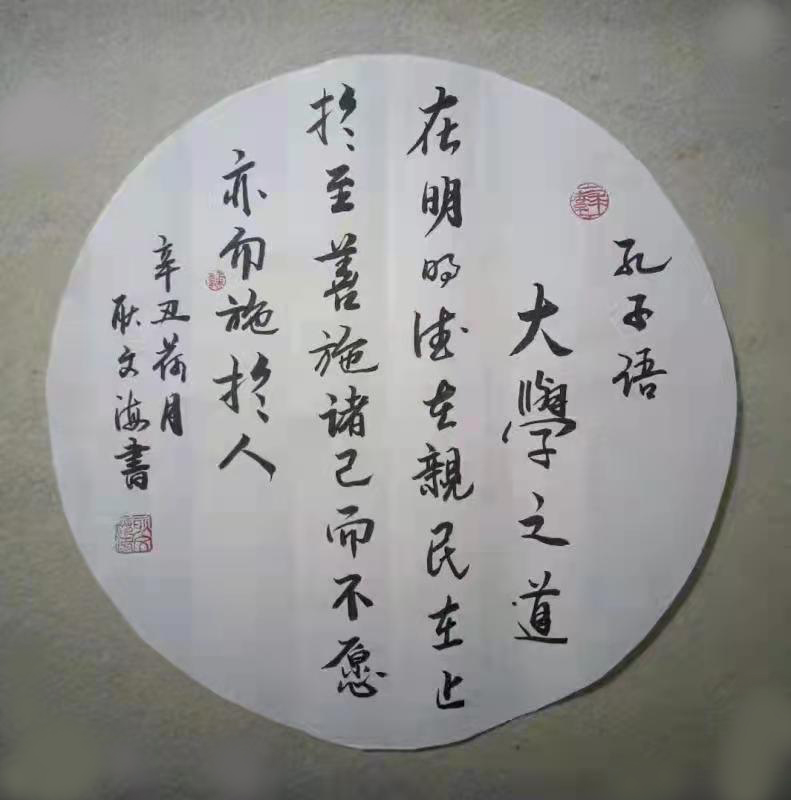 孔子语
大學之道
在明明德在親民在止
於至善施诸己而不愿
亦勿施於人
辛丑荷月
耿文海書